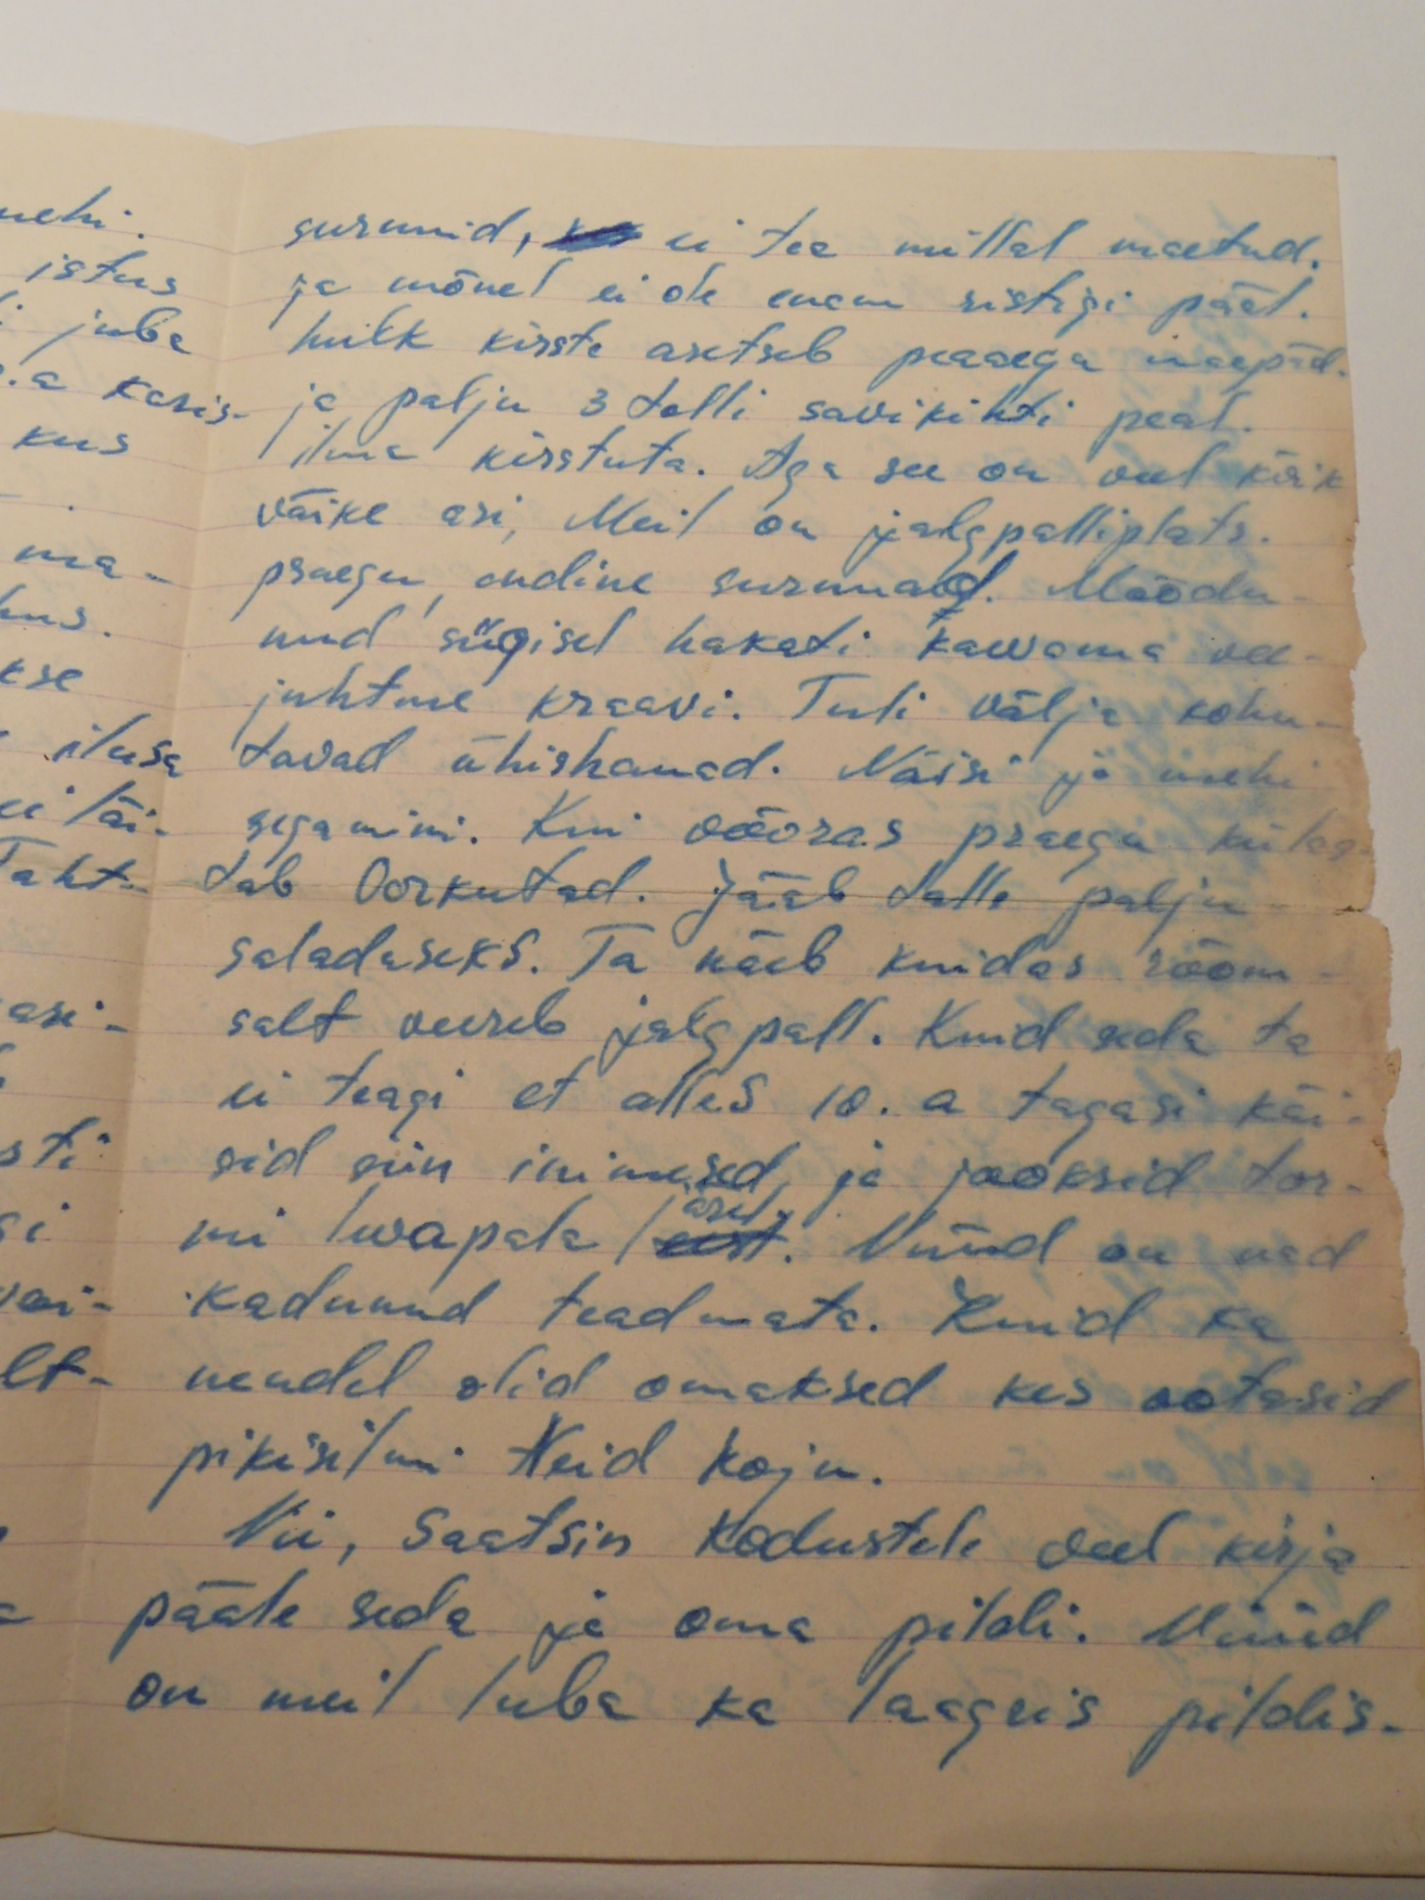 mehi.
istus
juba
a karis-
kus
ma-
hus.
kse
ilusa
ei läi-
Taht-
asi-
sti
gi
vai-
lt-
surnuid, ei tea millal maetud.
ja mõnel ei ole enam ristigi pääl.
hulk kirste asetseb peaaegu maapääl.
ja palju 3 tolli savikihti peal.
ilma kirstuta. Aga see on veel kõik
väike asi, Meil on jalgpalliplats.
praegu, endine surnuaed. Möödu-
nud sügisel hakati kaevama vee-
juhtme kraavi. Tuli välja kohu-
tavad ühishauad. Naisi ja mehi
segamini. Kui võõras praegu külas-
tab Vorkutad. Jääb talle palju
saladuseks. Ta näeb kuidas rõõm-
salt veereb jalgpall. Kuid seda ta
ei teagi et alles 10. a tagasi käi-
sid siin inimesed, ja jooksid tor-
mi lwapala äxel. Nüüd on nad
kadunud teadmata. Kuid ka
nendel olid omaksed kes ootasid
pikisilmi Neid koju.
Nii, Saatsin kodustele veel kirja
pääle seda ja oma pildi. Nüüd
on meil luba ka laagris pildis-